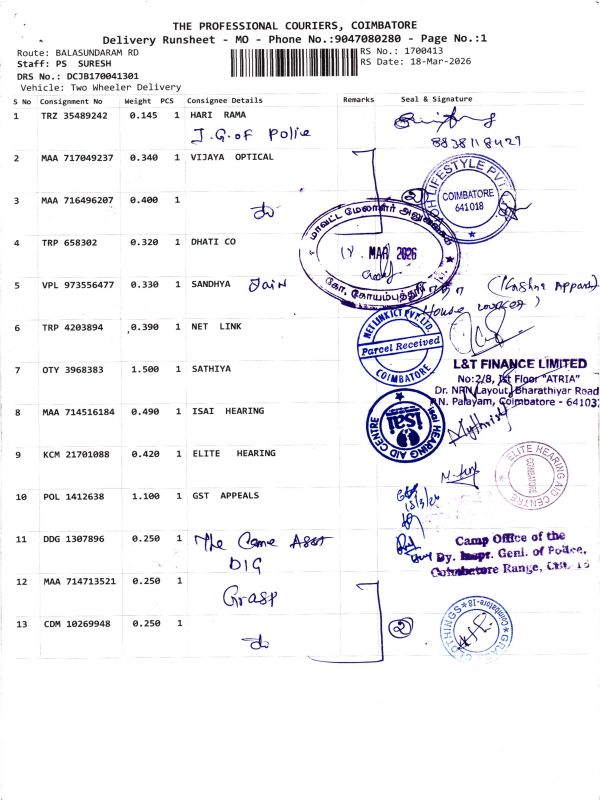 THE PROFESSIONAL COURIERS, COIMBATORE
Delivery Runsheet - MO - Phone No.:9047080280 - Page No.:1
Route: BALASUNDARAM RD
RS No.: 1700413
Staff: PS SURESH
RS Date: 18-Mar-2026
DRS No.: DCJB170041301
Vehicle: Two Wheeler Delivery
S No Consignment No Weight PCS Consignee Details Remarks Seal & Signature
1 TRZ 35489242 0.145 1 HARI RAMA
I.G. of Police
8838118427
2 MAA 717049237 0.340 1 VIJAYA OPTICAL
LIFESTYLE PVT.
COIMBATORE
641018
3 MAA 716496207 0.400 1
2
மாவட்ட மேலாளர் அலுவலகம்
MAR 2026
கோ. கோயம்புத்தூர்
4 TRP 658302 0.320 1 DHATI CO
5 VPL 973556477 0.330 1 SANDHYA Jain
House
6 TRP 4203894 0.390 1 NET LINK
NET LINK ICT PVT. LTD.
Parcel Received
COIMBATORE
7 OTY 3968383 1.500 1 SATHIYA
L&T FINANCE LIMITED
No:2/8, Ist Floor "ATRIA"
Dr. NRN Layout, Bharathiyar Road
P.N. Palayam, Coimbatore - 64103
8 MAA 714516184 0.490 1 ISAI HEARING
isai HEARING AID CENTRE
isai
9 KCM 21701088 0.420 1 ELITE HEARING
ELITE HEARING AID CENTRE
COIMBATORE
10 POL 1412638 1.100 1 GST APPEALS
18/3/26
11 DDG 1307896 0.250 1 The Asst
DIG
Camp Office of the
Dy. Inspr. Genl. of Police,
Coimbatore Range, CBE. 18
12 MAA 714713521 0.250 1 Grasp
13 CDM 10269948 0.250 1
2
CLOTHINGS
Coimbatore-18